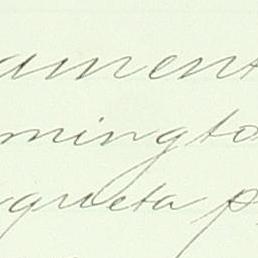 ament
mington
queta p